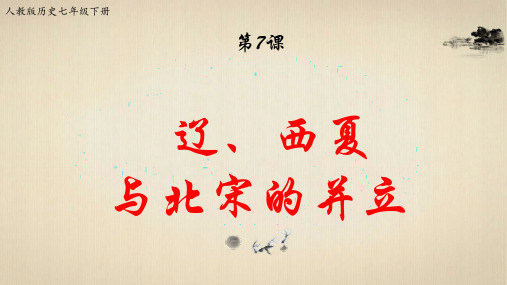 人教版历史七年级下册
第7课
辽、西夏
与北宋的并立